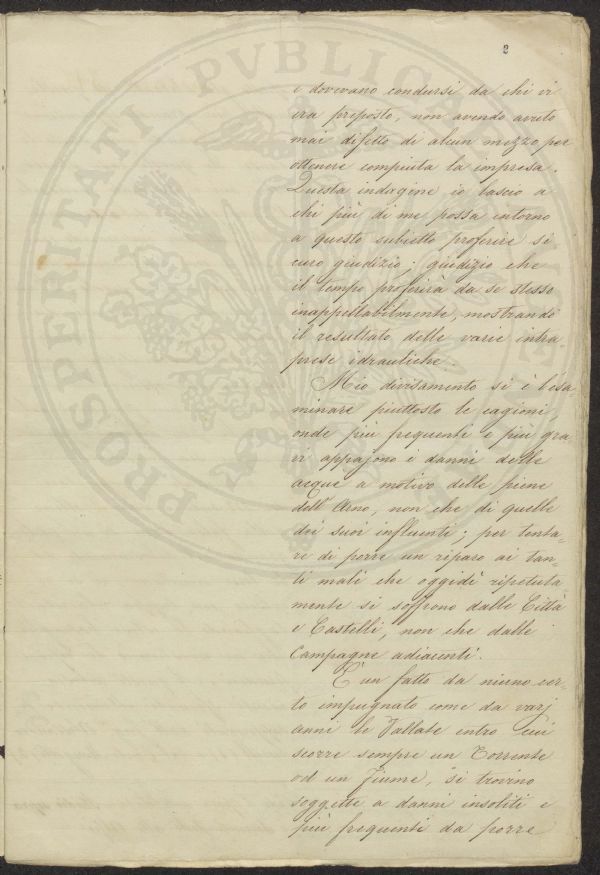 2
e dovevano condursi da chi vi
era preposto, non avendo avuto
mai difetto di alcun mezzo per
ottenere compiuta la impresa.
Questa indagine io lascio a
chi più di me possa intorno
a questo subietto proferire si
curo giudizio; giudizio che
il tempo proferirà da se stesso
inappellabilmente, mostrando
il resultato delle varie intra
prese idrauliche.
Mio divisamento si è l'esa-
minare piuttosto le cagioni,
onde più frequenti e più gra
vi appajono i danni delle
acque a motivo delle piene
dell'Arno, non che di quelle
dei suoi influenti; per tenta=
re di porre un riparo ai tan=
ti mali che oggidì ripetuta
mente si soffrono dalle Città
e Castelli, non che dalle
Campagne adiacenti.
È un fatto da niuno cer=
to impugnato come da varj
anni le Vallate entro cui
scorre sempre un Torrente
od un Fiume, si trovino
soggette a danni insoliti e
più frequenti da porre
PROSPERITATI PVBLICAE